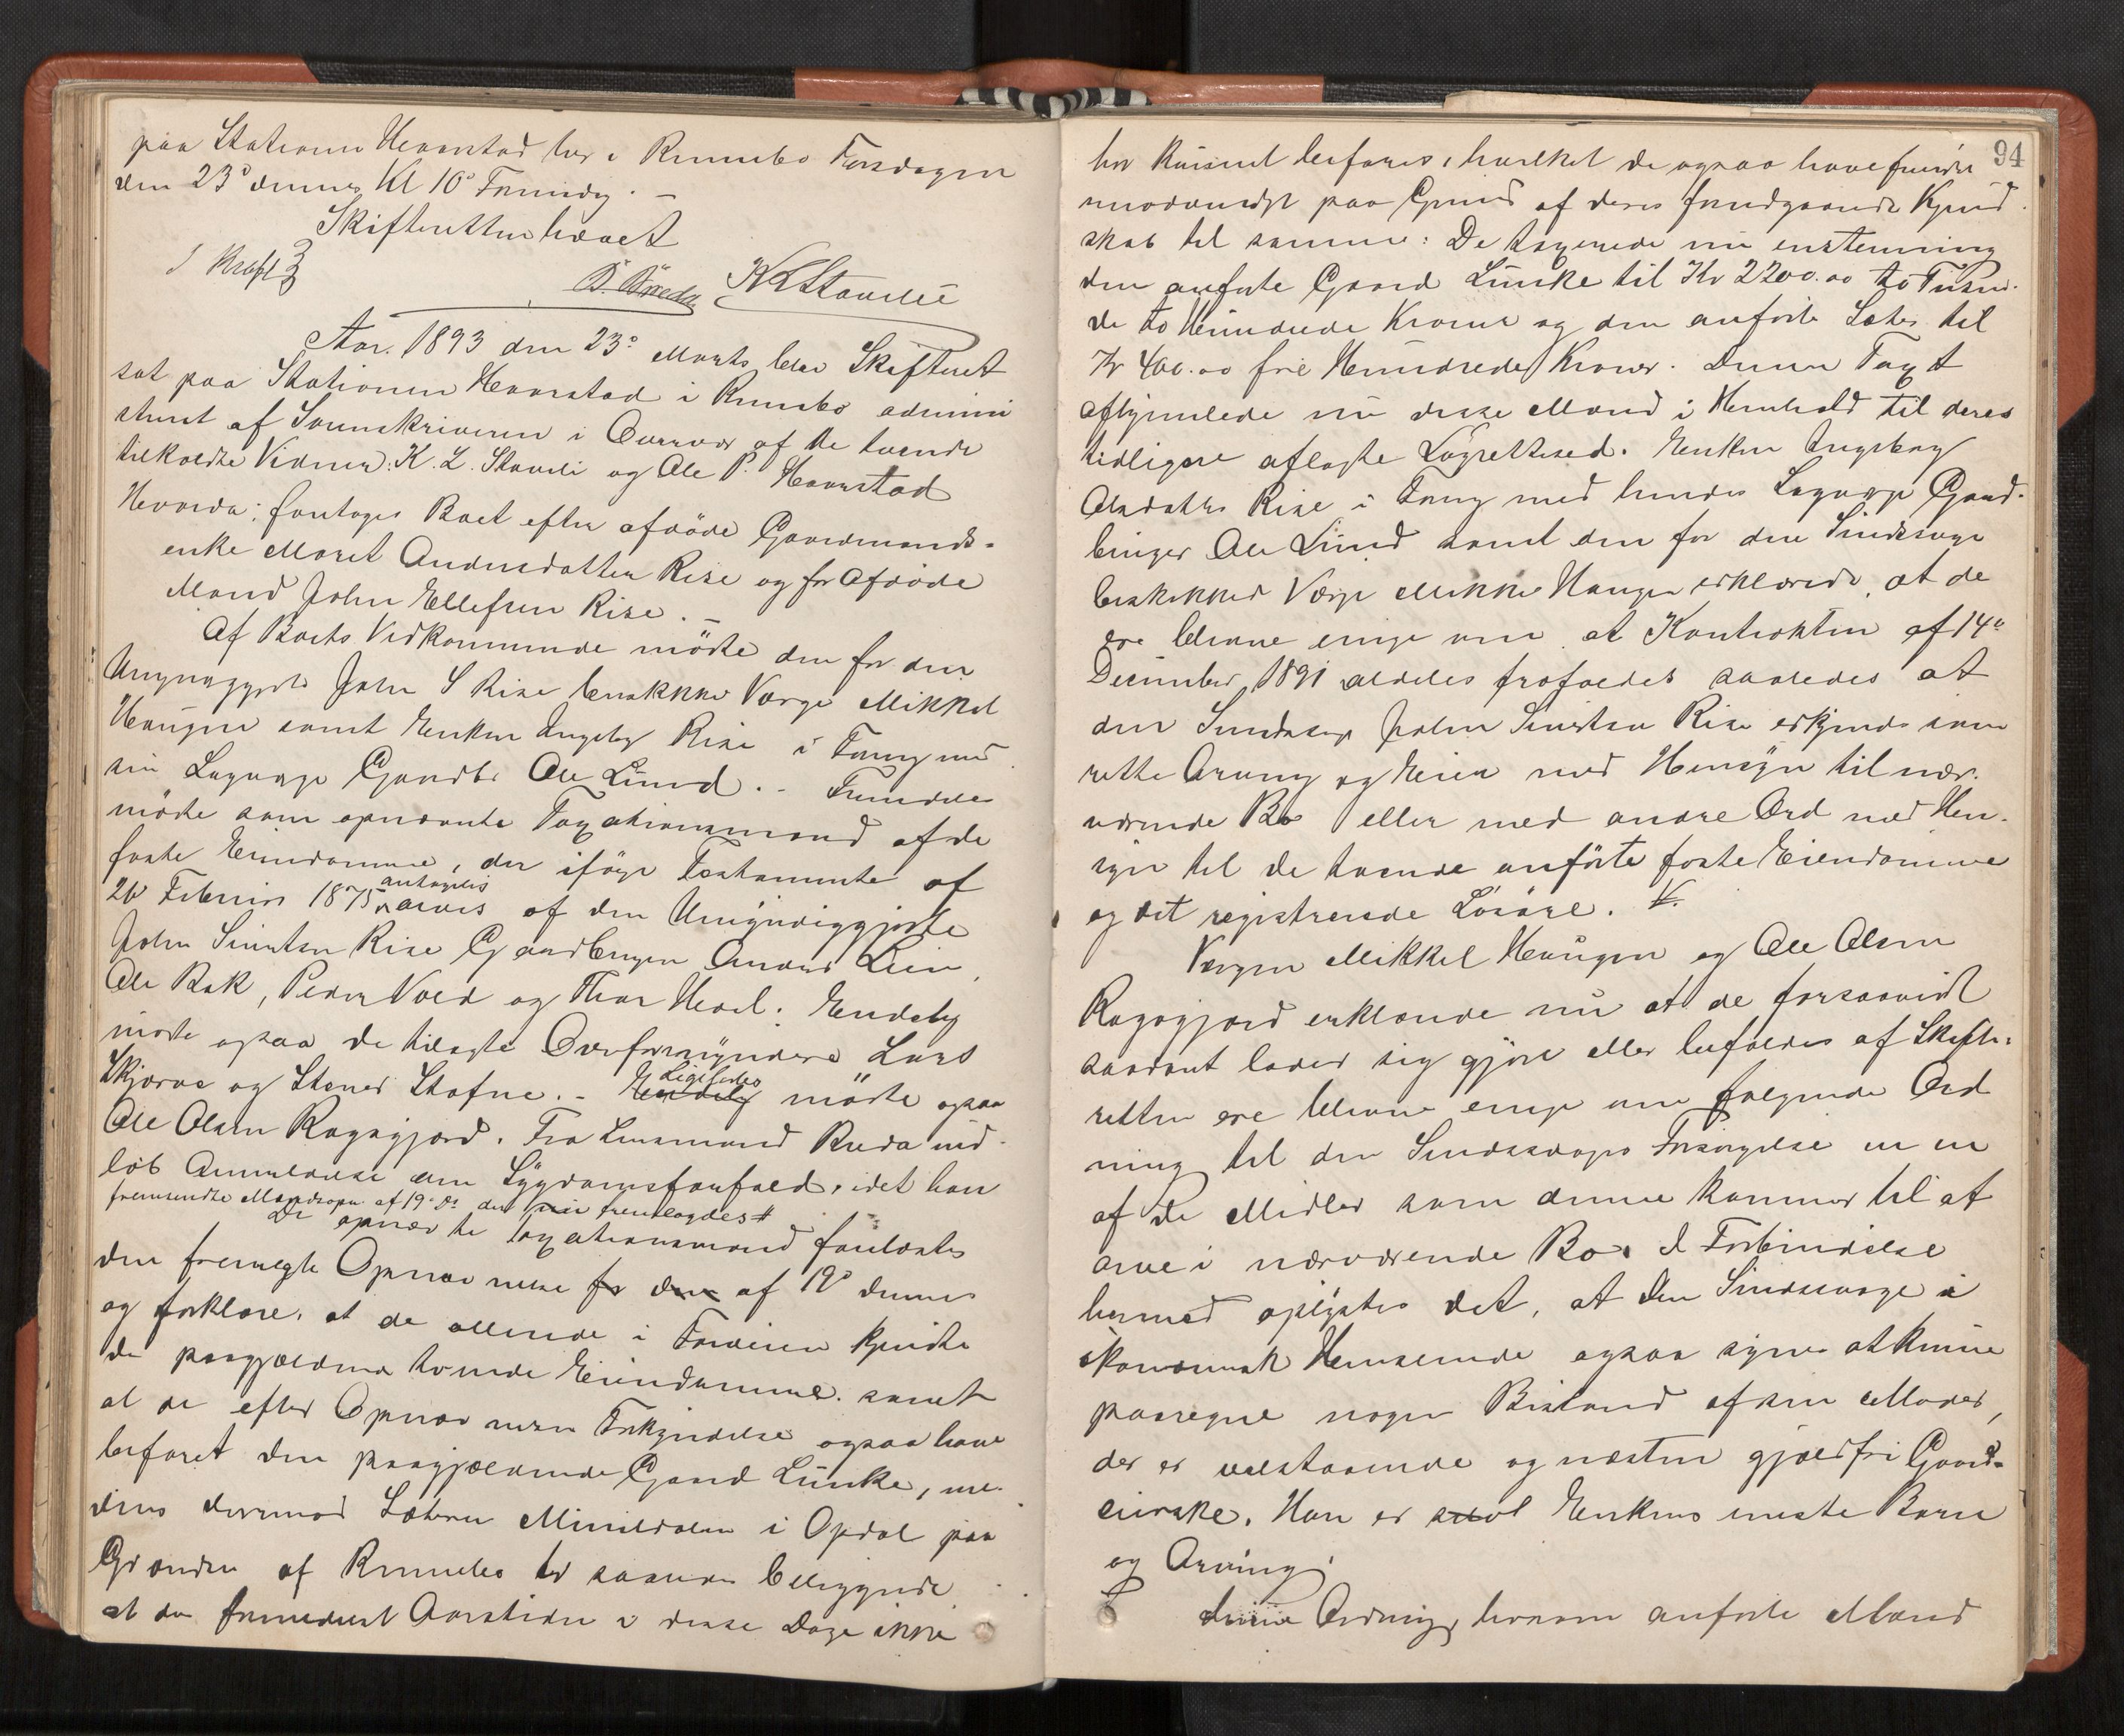 paa Stationen Havnstad her i Rennebo Torsdagen
den 23de dennes Kl 10 Formdg. –
Skifteretten hævet
J Krafft
B. Bredes K L Stavelie
Aar. 1893 den 23de Marts blev Skifteret
sat paa Stationen Havnstad i Rennebo admini
streret af Sorenskriveren i Overvær af de tvende
tilkaldte Vidner: K. L. Stavli og Ole P. Havnstad
Hvorda: foretoges Boet efter afdøde Gaardmands-
enke Maret Andersdatter Rise og før Afdøde
Mand John Ellefsen Rise. –
Af Boets Vedkommende mødte den for den
Umyndiggjorte John S Rise beskikkede Værge Mikkel
Haugen samt Enken Ingeborg Rise i Fang med
sin Lagværge Gaardbr Ole Lund. – Fremdeles
mødte som opnævnte Taxationsmænd af de
faste Eiendomme, der ifølge Testamente af
26 Februar 1875 antagelig arves af den Umyndiggjorte
John Sivertsen Rise Gaardbruger Anders Lien,
Ole Bak, Peder Vold og Thor Hevel. Endelig
mødte ogsaa de tilsagte Overformyndere Lars
Skjerve og Stener Stafne. – Endelig Ligeledes mødte ogsaa
Ole Olsen Rogogjerd. Fra Lensmand Breda ind-
løb Anmeldelse om Sygdomsforfald, idet han
fremsendte Mandsopn. af 19de Ds. der nu fremlagdes #
De opnævnte Taxationsmænd foreløstes
den fremlagte Opnævnelse for den af 19de dennes
og forklare, at de allerede i Forveien kjendte
de paagjældende tvende Eiendomme. samt
at de efter Opnævnelsens Forkyndelse ogsaa have
befaret den paagjældende Gaard Lunke, me-
dens derimod Sæteren Minildalen i Opdal paa
Grændsen af Rennebo er saaledes beliggende
at den formedelst Aarstiden i disse Dage ikke
94
har kunnet befares, hvilket de ogsaa have fundet
unødvendigt paa Grund af deres forudgaaende Kjend
skab til samme: De taxerede nu enstemmig
den anførte Gaard Lunke til Kr 2200.00 to Tusin-
de to Hundrede Kroner og den anførte Sæter til
Kr 400.00 fire Hundrede Kroner. Denne Taxt
afhjemlede nu disse Mænd i Henhold til deres
tidligere aflagte Lagrettesed. Enken Ingeborg
Olsdatter Rise i Fang med hendes Lagværge Gaard-
bruger Ole Lund samt den for den Sindssyge
beskikkede Værge Mikkel Haugen erklærede, at de
ere blevne enige om at Kontrakten af 14de
December 1891 aldeles frafaldes saaledes at
den Sindssyge John Sivertsen Rise erkjendes som
rette Arving og Eier med Hensyn til nær-
værende Bo eller med andre Ord med Hen-
syn til de tvende anførte faste Eiendomme
og det registrerede Løsøre. V.
Værgen Mikkel Haugen og Ole Olsen
Rogogjerd erklærede nu at de forsaavidt
saadant lader sig gjøre eller befales af Skifte-
retten ere blevne enige om følgende Ord
ning til den Sindssyges Forsørgelse en en
af de Midler som denne kommer til at
arve i nærværende Bo. I Forbindelse
hermed oplystes det, at den Sindssyge i
økonomisk Henseende ogsaa synes at kunne
paaregne nogen Bistand af sin Moder,
der er velstaaende og næsten gjældfri Gaard-
eierske. Han er skal Enkens eneste Barn
og Arving.
Denne Ordning, hvorom anførte Mænd